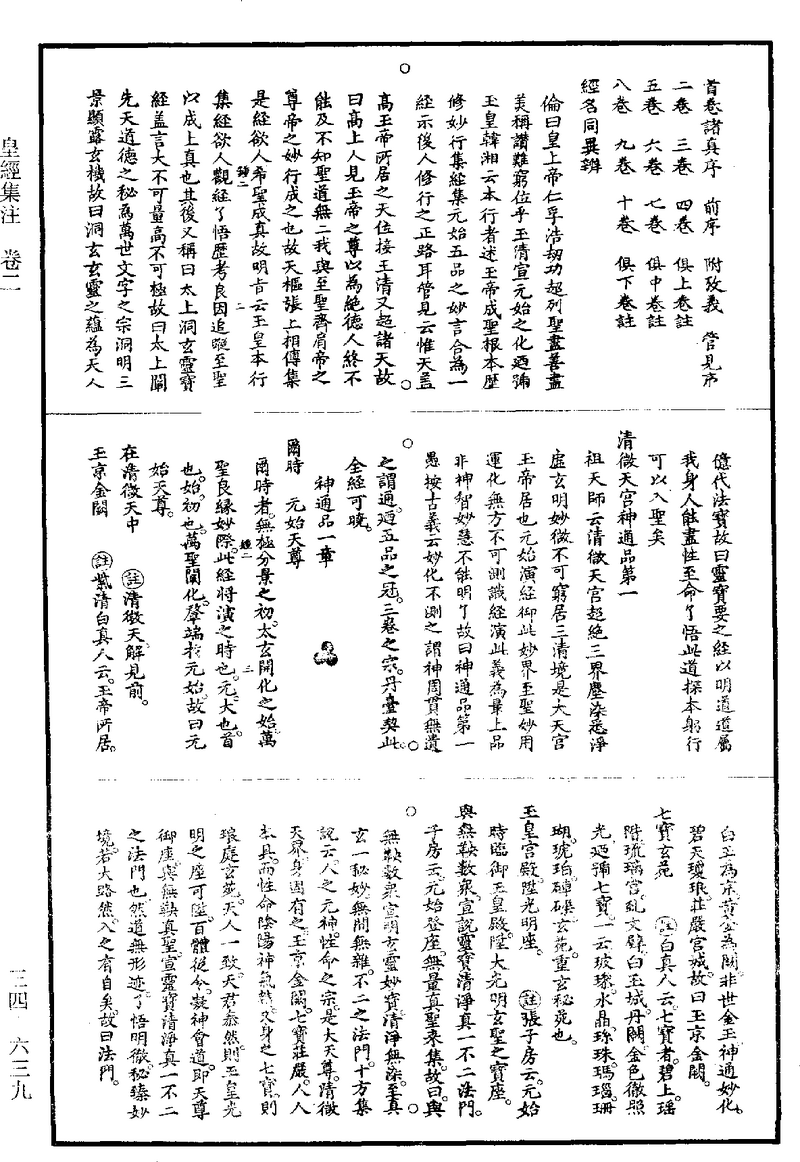 皇經集注 卷二
首卷諸真序 前序 附攷義 管見市
二卷 三卷 四卷 俱上卷註
五卷 六卷 七卷 俱中卷註
八卷 九卷 十卷 俱下卷註
經名同異辨
倫曰皇上帝仁孚浩劫功超列聖盡善盡
美稱讚難窮位乎玉清宣元始之化迺彌
玉皇韓湘云本行者述玉帝成聖根本歷
修妙行集經集元始五品之妙言合為一
經示後人修行之正路耳管見云惟天蓋
高玉帝所居之天位接玉清又超諸天故
曰高上人見玉帝之尊以為絕德人終不
能及不知聖道無二我與至聖齊肩帝之
尊帝之妙行成之也故天樞張上相傳集
是經欲人希聖成真故明旨云玉皇本行
集經欲人觀經了悟歷考良因追蹤至聖
以成上真也其後又稱曰太上洞玄靈寶
經蓋言大不可量高不可極故曰太上闡
先天道德之秘為萬世文字之宗洞明三
景顯露玄機故曰洞玄玄靈之蘊為天人
億代法寶故曰靈寶要之經以明道道屬
我身人能盡性至命了悟此道探本躬行
可以入聖矣
清微天宮神通品第一
祖天師云清微天宮超絕三界塵染悉淨
虛玄明妙微不可窮居三清境是大天宮
玉帝居也元始演經御此妙界至聖妙用
運化無方不可測識經演此義為最上品
非神智妙慧不能明了故曰神通品第一
愚按古義云妙化不測之謂神周貫無遺
之謂通迺五品之冠三卷之宗丹臺契此
全經可曉。
神通品一章
爾時 元始天尊
爾時者。無極分景之初。太玄開化之始。萬
聖良緣妙際。此經將演之時也。元。大也。首
也。始。初也。萬聖闡化。肇端於元始。故曰元
始天尊。
在清微天中 註清微天。解見前。
玉京金闕 註紫清白真人云。玉帝所居。
白玉為京。黃金為闕。非世金玉。神通妙化。
碧天瓊琅。莊嚴宮城。故曰玉京金闕。
七寶玄苑 註白真人云。七寶者。碧上瑤
階。琉璃宮。虬文檗。白玉城。丹闕。金色徹照
光。迺彌七寶。一云玻瓈。水晶。珎珠。瑪瑙。珊
瑚。琥珀。硨磲。玄苑。重玄秘苑也。
玉皇宮殿。陞光明座。 註張子房云。元始
時臨御玉皇殿。陞大光明玄聖之寶座。
與無鞅數衆。宣說靈寶清淨真一不二法門。
子房云。元始登座。無量真聖來集。故曰。與
無鞅數衆。宣明玄靈妙寶。清淨無染。至真
玄一。秘妙無間無雜。不二之法門。十方集
說云。人之元神。性命之宗。是大天尊。清微
天界。身固有之。玉京金闕。七寶莊嚴。人人
本具。而性命陰陽神氣等。又身之七寶。則
琅庭玄苑。天人一致。天君泰然。則玉皇光
明之座可陞。百體從令。凝神會道。即天尊
御座。與無鞅真聖。宣靈寶清淨真一不二
之法門也。然道無形迹。了悟明微。秘臻妙
境。若大路然。入之有自矣。故曰法門。
三四 六三九